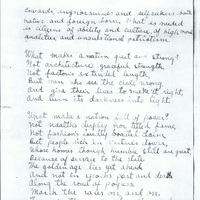 towards
and foreign born. What is needed
is citizens of ability and culture, of high moral
qualities and unsullied patriotism.
What makes a nation great and strong?
Not architecture graceful, strength,
Not factories extended length,
But men who see the civic wrong
And give their lives to make it right
And turn its darkness into light.
What makes a nation full of power?
Not wealth's display nor titled fame,
Not fashion's loudly boasted claim
But people rich in virtue's dower,
whose homes though humble still are great,
Because of service to the state
The golden age lies yet ahead
And not in epochs past and dead
Along the road of progress
March the ranks on, and on